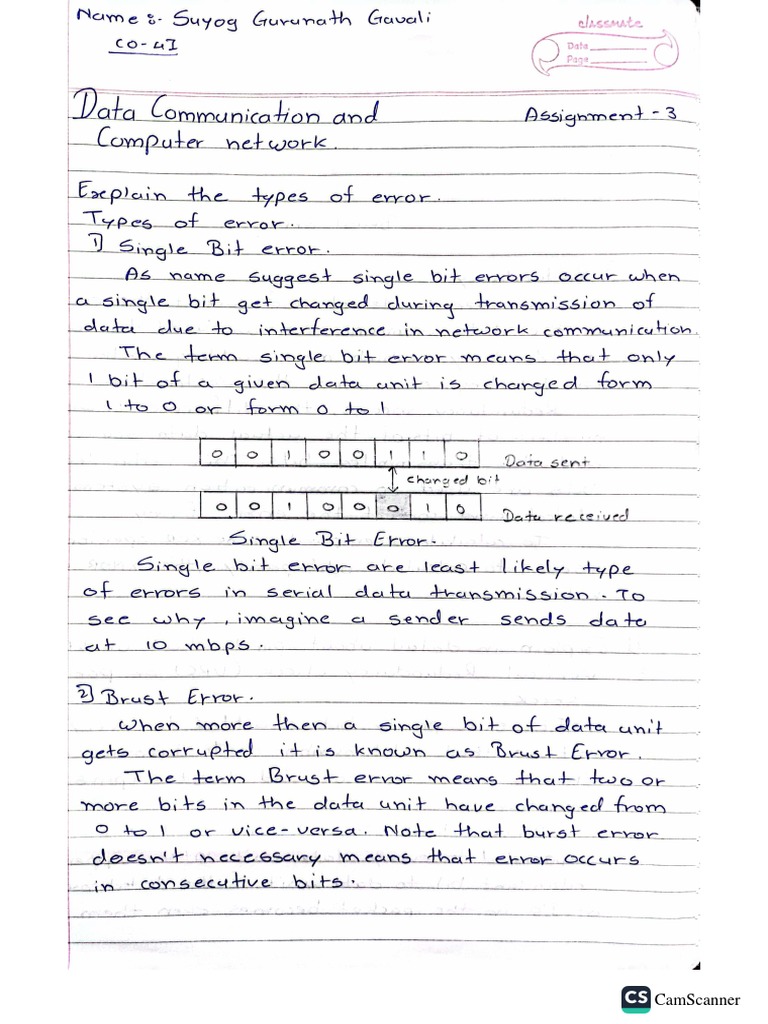 Name :- Suyog Gurunath Gavali
CO-4I
classmate
Date
Page
Data Communication and
Assignment - 3
Computer network.
Explain the types of error.
Types of error.
1) Single Bit error.
As name suggest single bit errors occur when
a single bit get changed during transmission of
data due to interference in network communication.
The term single bit error means that only
1 bit of a given data unit is changed form
1 to 0 or form 0 to 1
0 0 1 0 0 1 1 0 Data sent
changed bit
0 0 1 0 0 0 1 0 Data received
Single Bit Error.
Single bit error are least likely type
of errors in serial data transmission. To
see why, imagine a sender sends data
at 10 mbps.
2) Brust Error.
When more then a single bit of data unit
gets corrupted it is known as Brust Error.
The term Brust error means that two or
more bits in the data unit have changed from
0 to 1 or vice-versa. Note that burst error
doesn't necessary means that error occurs
in consecutive bits.
CS CamScanner